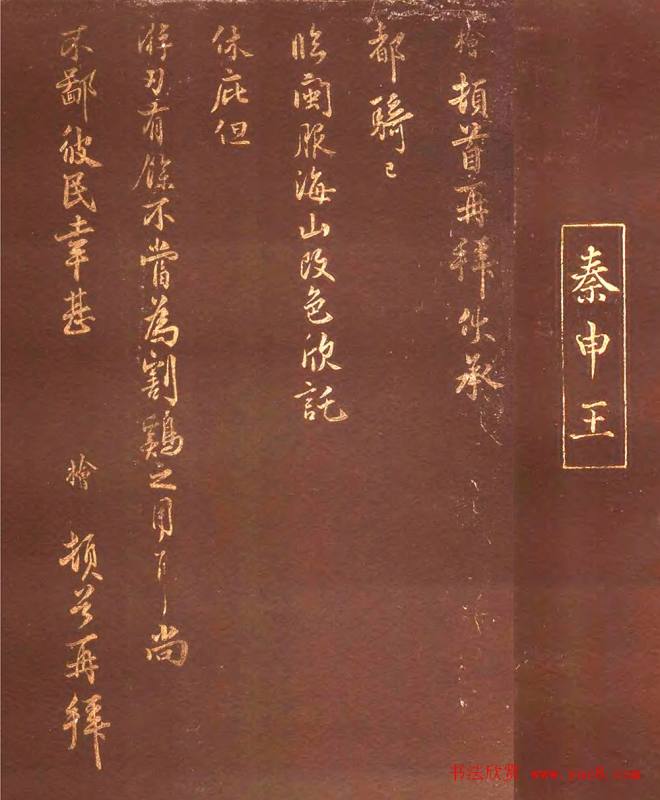 秦申王
檜頓首再拜伏承
都騎已
临閩服海山改色欣託
休庇但
游刃有餘不當為割鷄之用耳尚
不鄙彼民幸甚 檜 頓首再拜
书法欣赏 www.yac8.com